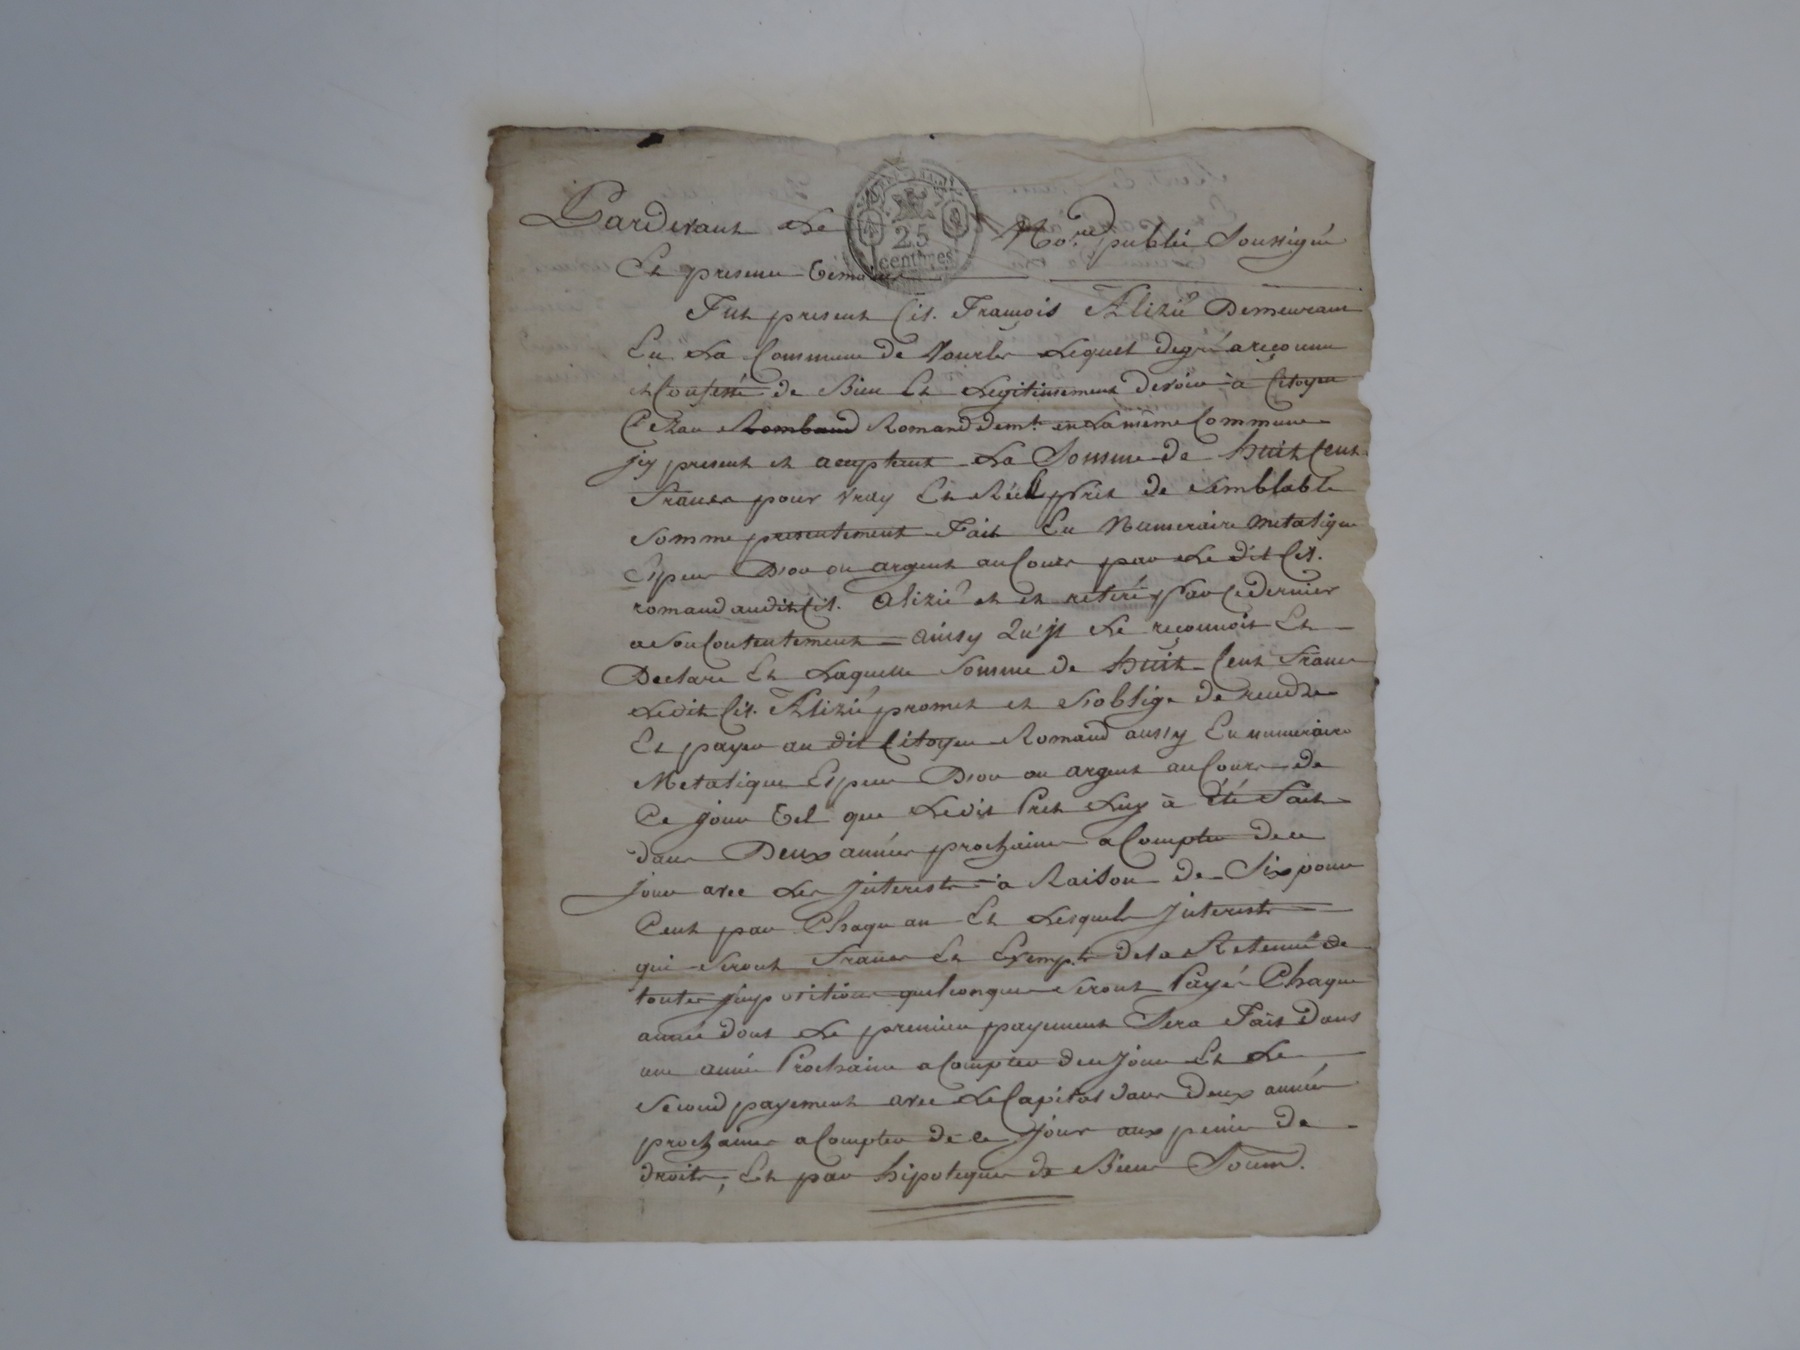 Pardevant Le No.re public Soussigné
Et presens Temoins
25
centimes
Fut present Cit. François Alizié Demeurant
En La Commune de Vourles Lequel degré a reconnu
et Confessé de Bien Et Legitimement devoir à Citoyen
Romand demt. en La même Commune
jcy present et aceptant La Somme de huit Cent
francs pour vray Et Réel prêt de Semblable
Somme presentement Fait En Numeraire metalique
Espece D'or ou argent au Cours par Le dit Cit.
romand audit Cit. alizié et et retiré par Ce dernier
a Son Contentement ainsy Qu'jl Le reconnoit Et
Declare Et Laquelle Somme de huit Cent francs
Ledit Cit. Alizié promet et S'oblige de rendre
Et payer au dit Citoyen Romand aussy En numeraire
Metalique Espece D'or ou argent au Cours de
Ce jour Tel que Ledit Pret Luy à été fait
dans Deux années prochaines a Compter de ce
jour avec Les jnterests à Raison de Six pour
Cent par Chaque an Et Lesquels jnterests
qui Seront francs Et Exempts de la Retenue de
toutes jmpositions quelconques Seront Payés Chaque
année dont Le premier payement Sera Fait dans
une année Prochaine a Compter de ce jour Et Le
Second payement avec Le Capital dans Deux années
prochaines a Compter de ce jour aux peines de
droits, Et par hipoteques de Biens Soumis.